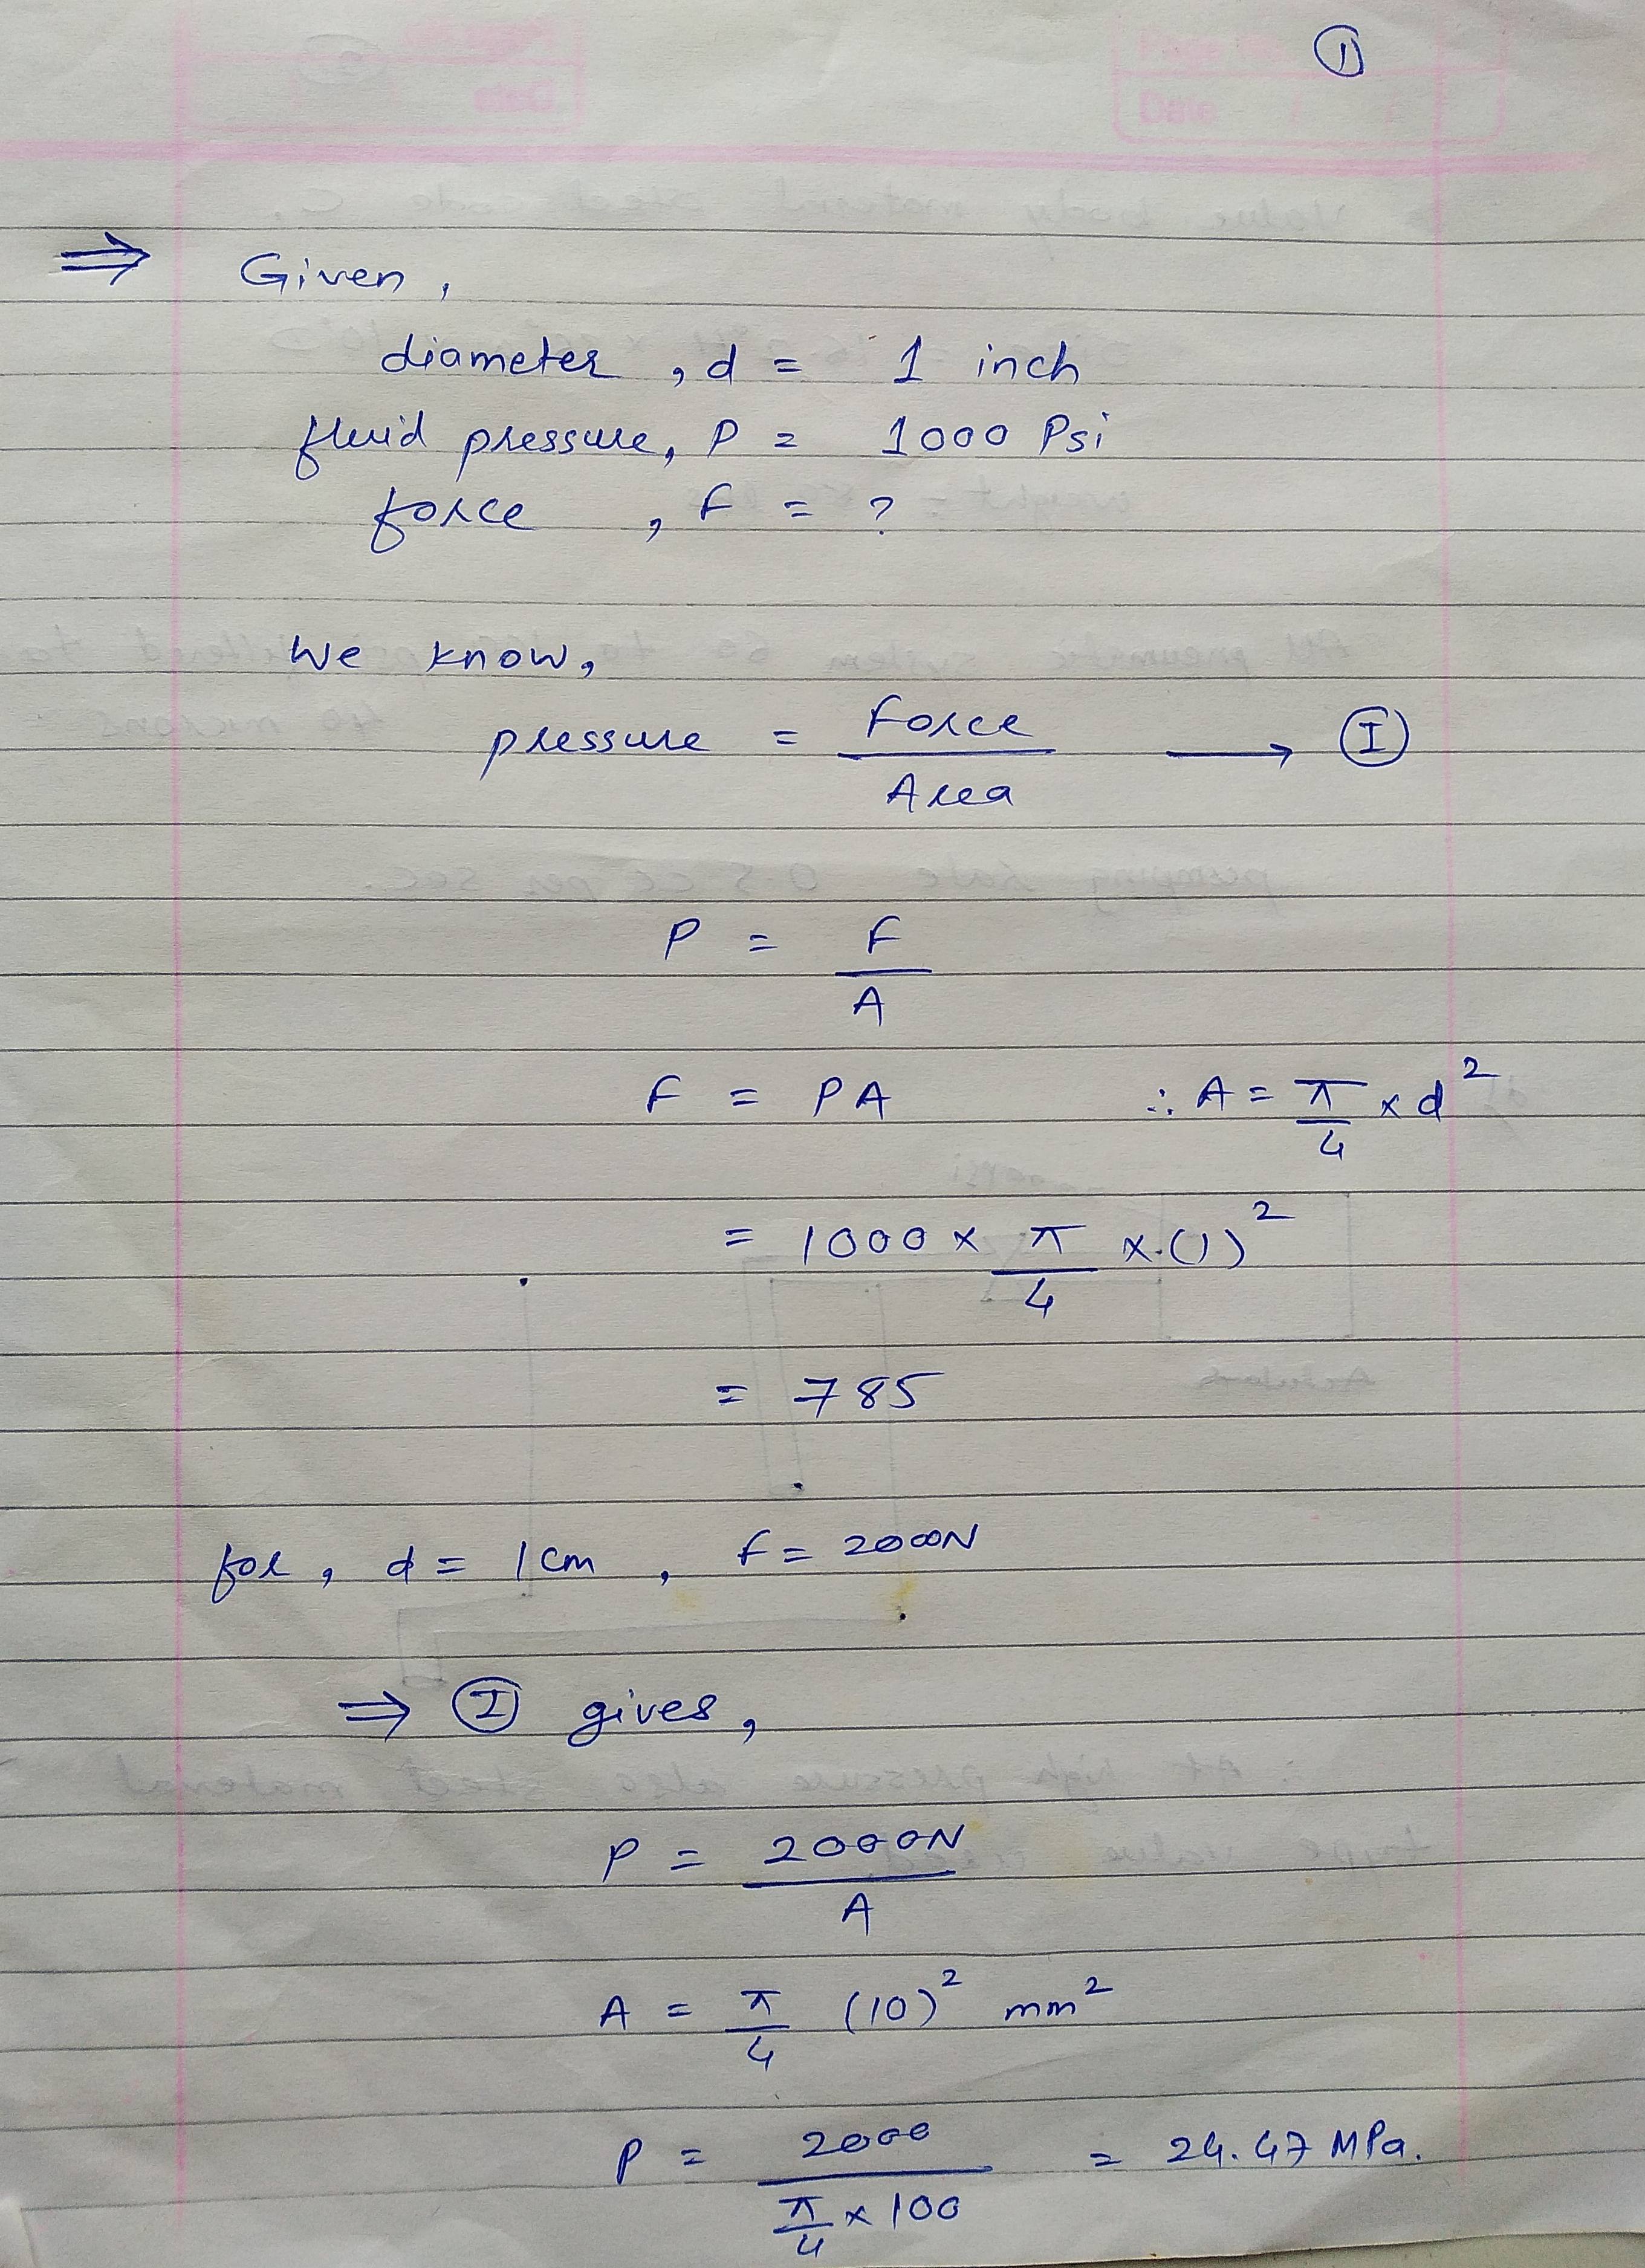 ①
Date
⇒ Given,
diameter, d = 1 inch
fluid pressure, P = 1000 Psi
force, F = ?
We know,
pressure = Force / Area ⟶ Ⓘ
P = F / A
F = PA ∴ A = π/4 × d²
= 1000 × π/4 × (1)²
= 785
for, d = 1 cm, F = 2000N
⇒ Ⓘ gives,
P = 2000N / A
A = π/4 (10)² mm²
P = 2000 / (π/4 × 100) = 24.47 MPa.